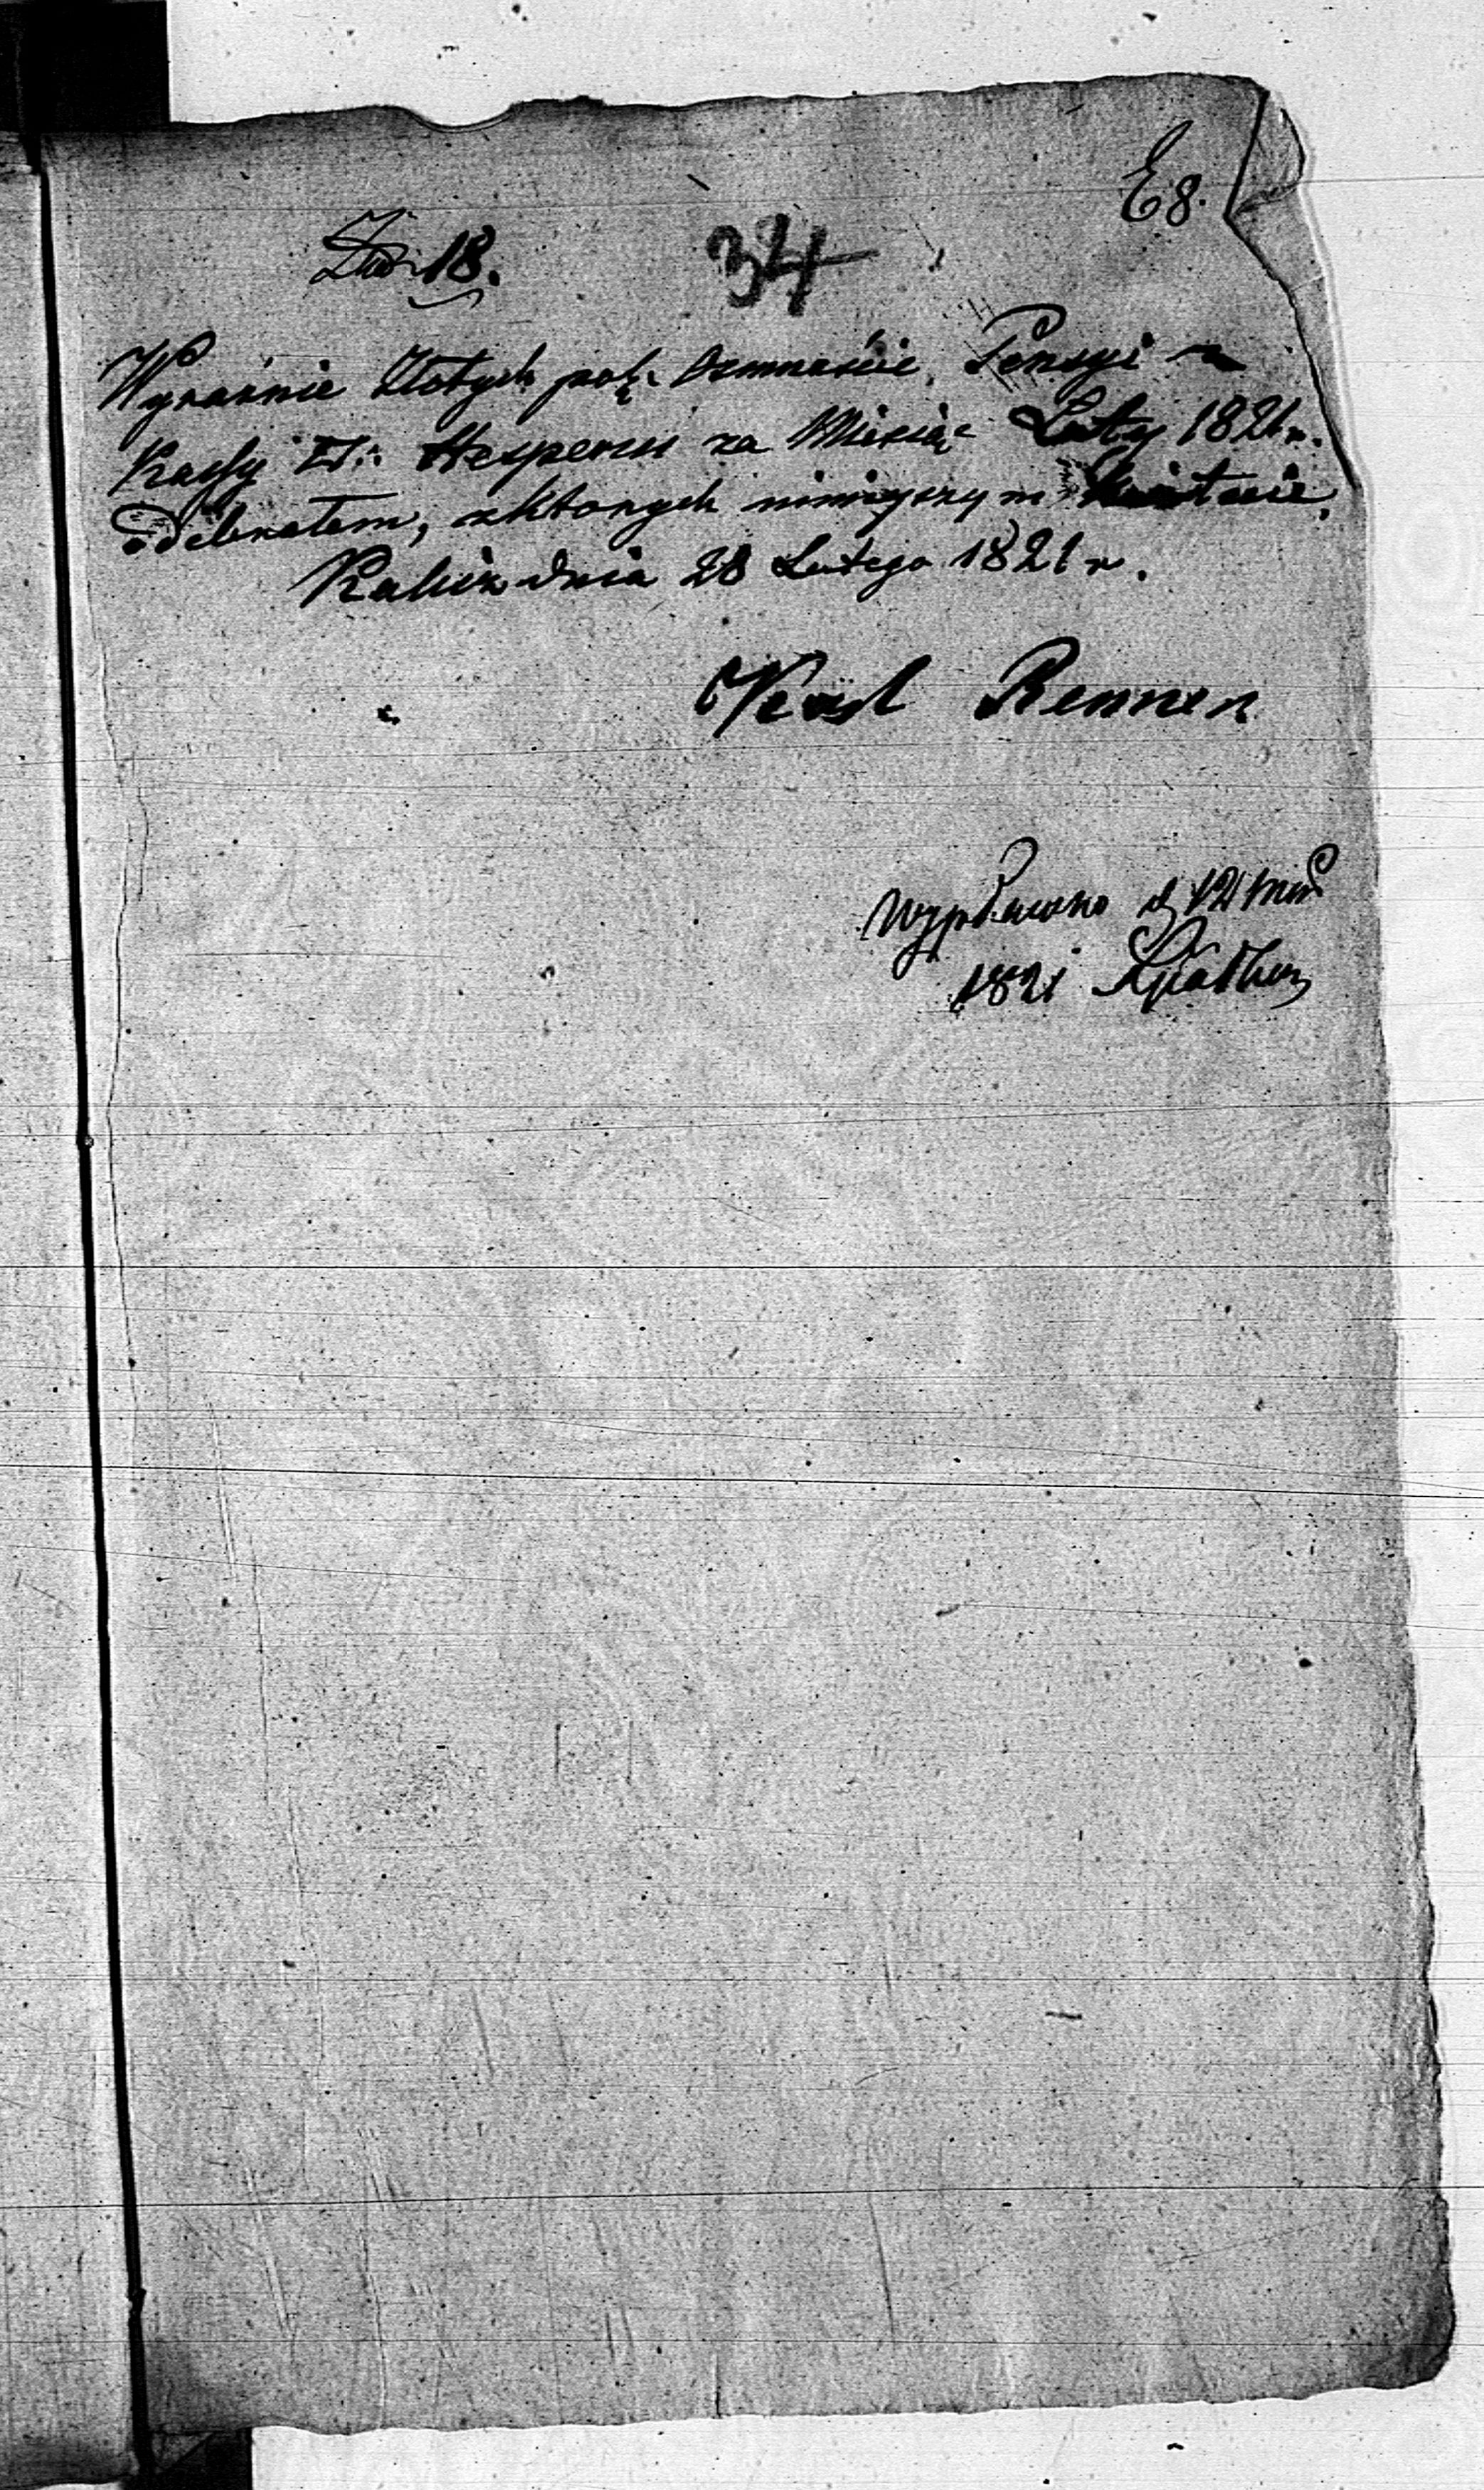 E 8.
34
18.
Wyraźnie Złotych pol: Osmnaście, Pensyi z
Kassy Hesperus za Miesiąc Luty 1821 r.
Odebrałem, z których niniejszym Kwituie.
Kalisz dnia 28 Lutego 1821 r.
Karl Renner
Wypłacono d 12
1821